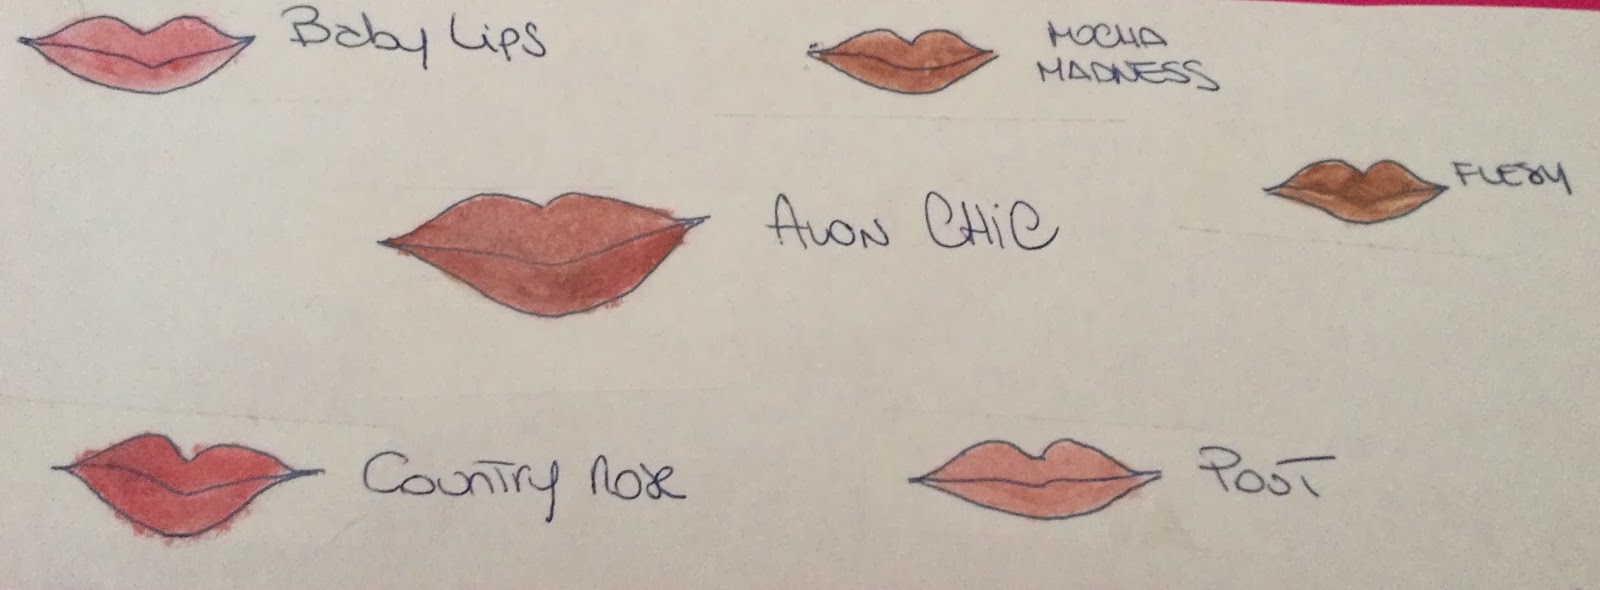 Baby Lips
MOCHA
MADNESS
FLESH
AVON CHiC
Country Rose
POUT